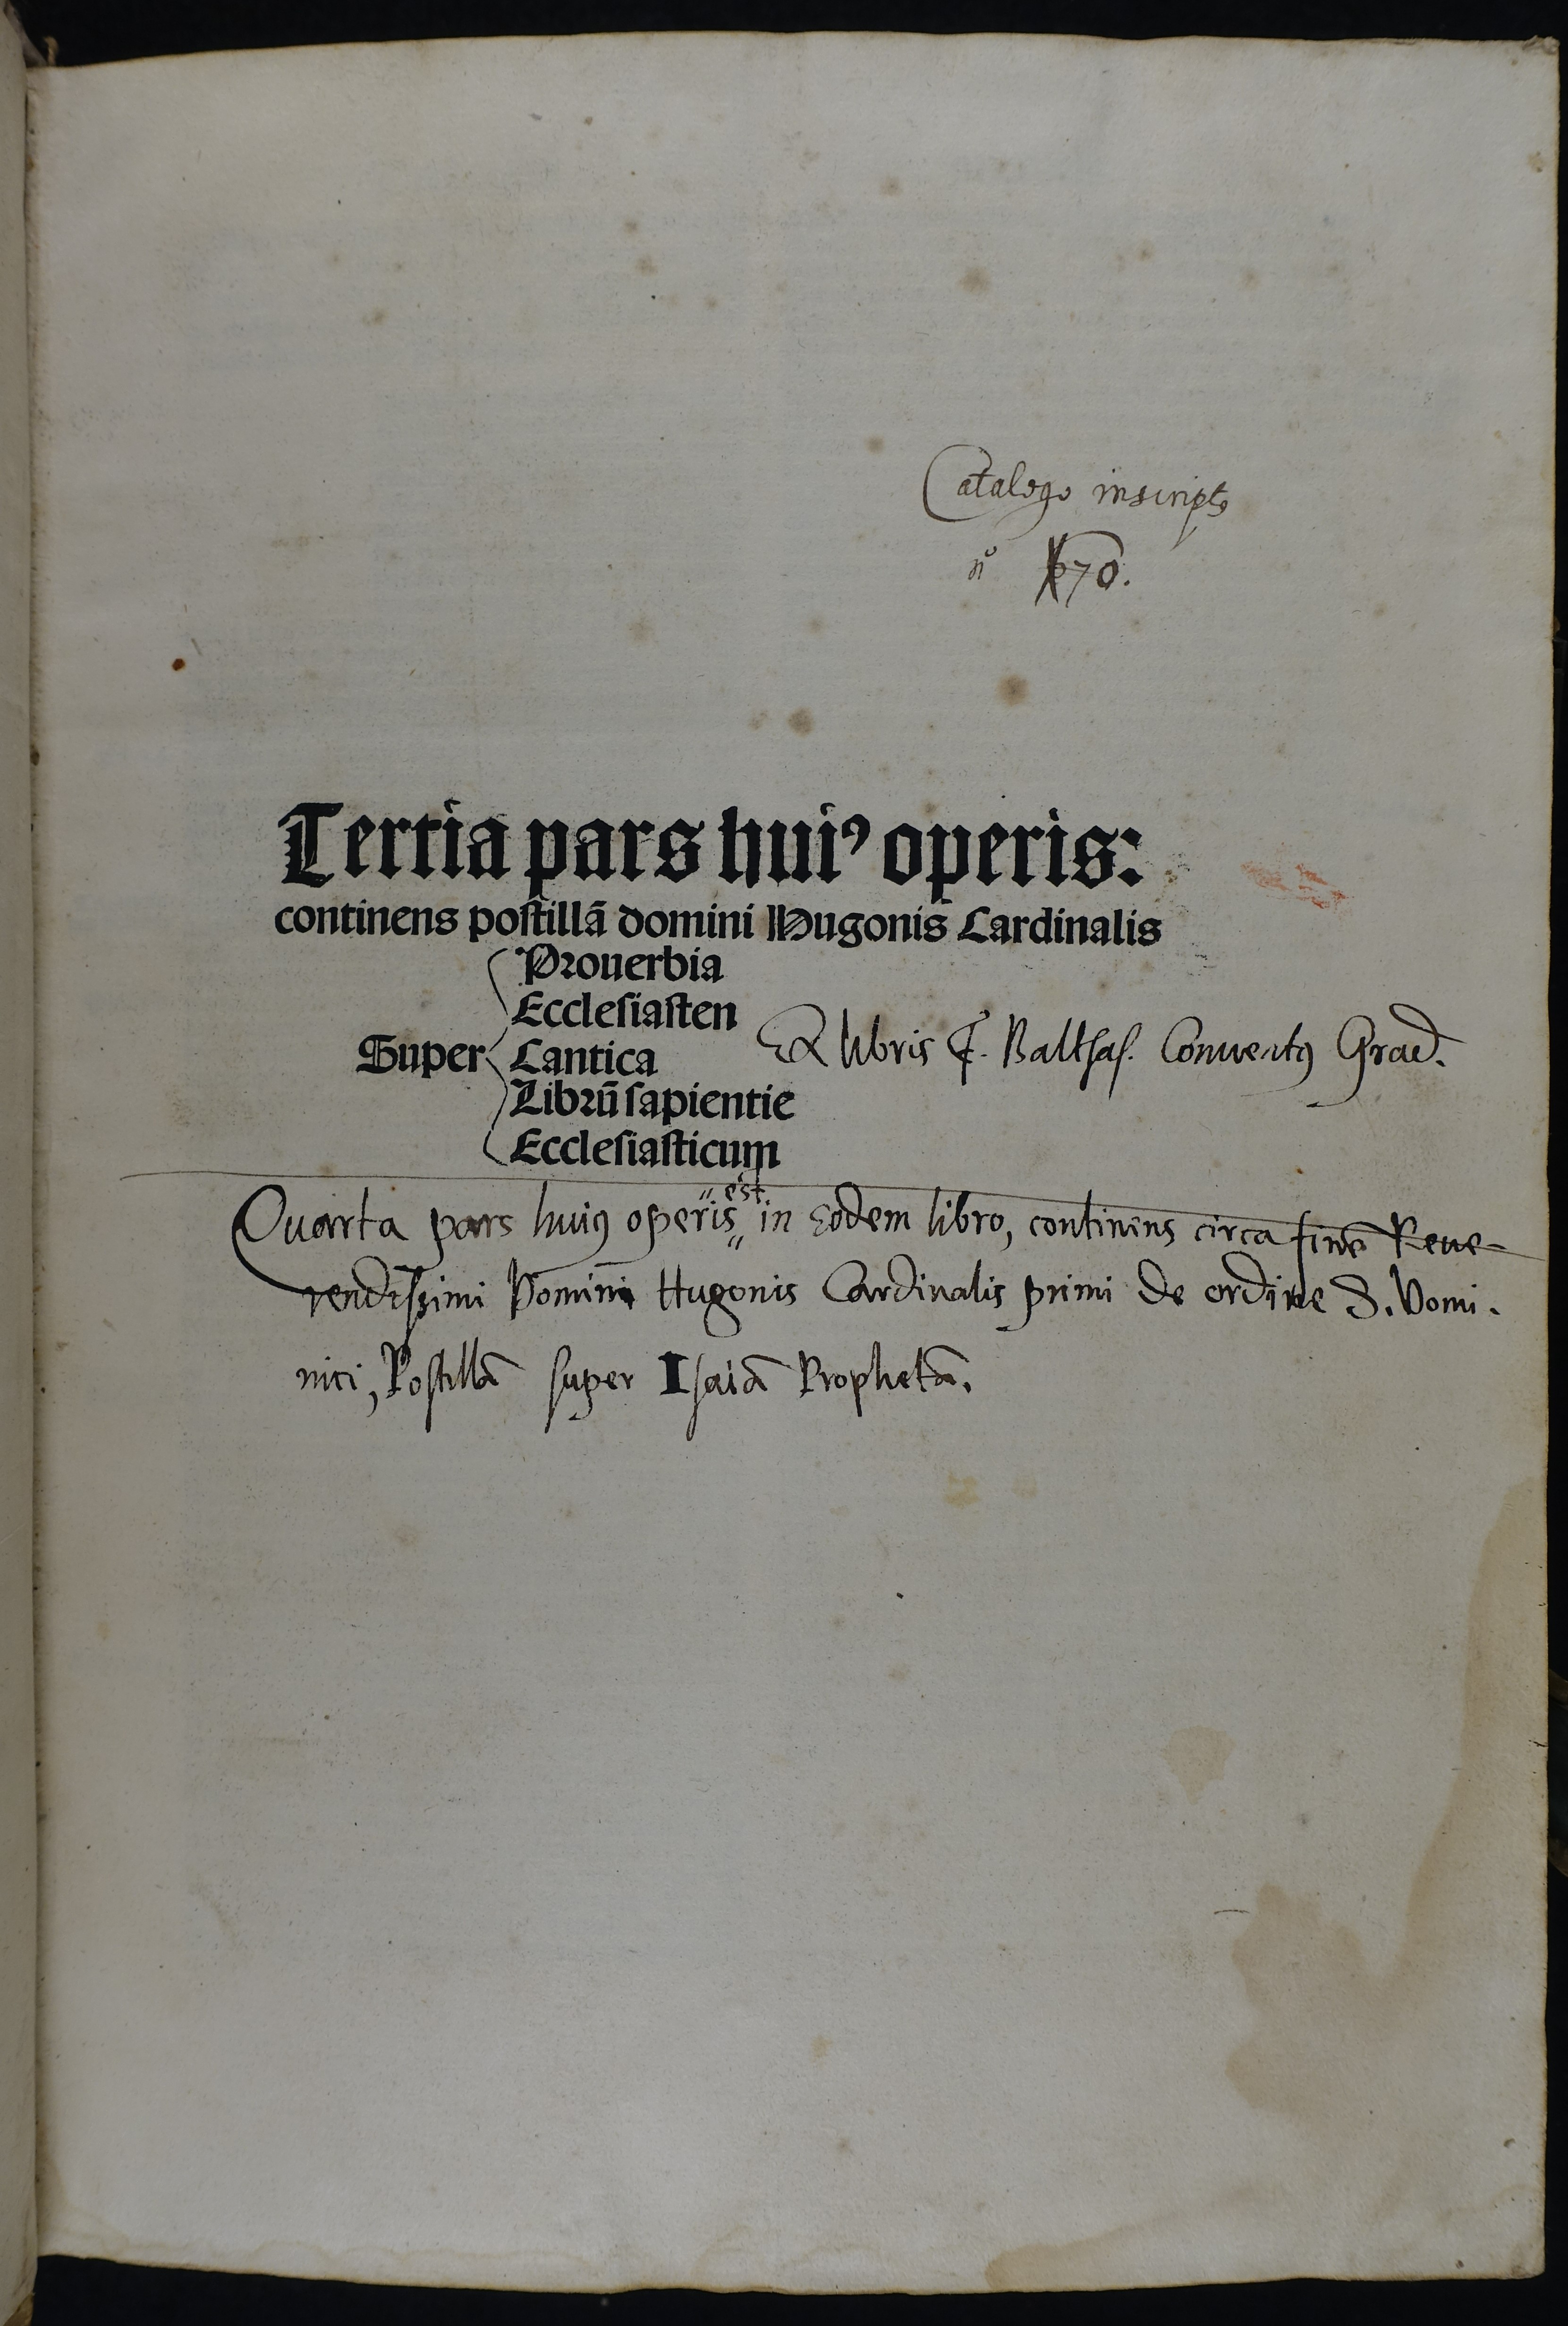 Catalogo inscripto
nº 670.
Tertia pars huiꝰ operis:
continens postillā domini Hugonis Cardinalis
Prouerbia
Ecclesiasten
Super Cantica
Librū sapientie
Ecclesiasticum
Ex libris F. Balthas. Conventꝰ Graed.
Quarta pars huiꝰ operis est in eodem libro, continens circa finē Reue-
rendissimi Domini Hugonis Cardinalis primi de ordine S. Domi-
nici, Postillā super Isaiā Prophetā.